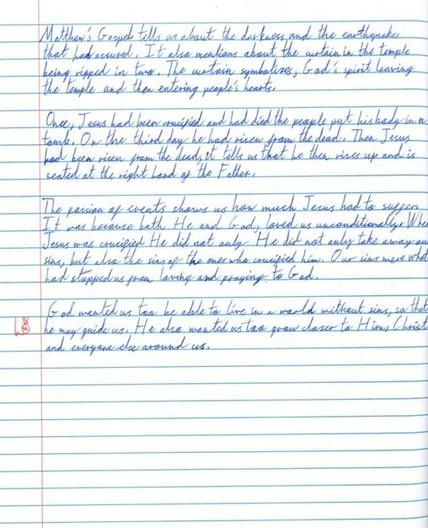 Matthew's Gospel tells us about the darkness and the earthquake
that had occured. It also mentions about the curtain in the temple
being ripped in two. The curtain symbolizes, God's spirit leaving
the temple and then entering people's hearts.
Once, Jesus had been crucified and had died the people put his body in a
tomb. On the third day he had risen from the dead. Then Jesus
had been risen from the dead, it tells us that he then rises up and is
seated at the right hand of the Father.
The passion of events shows us how much Jesus had to suffer.
It was because both He and God, loved us unconditionally. When
Jesus was crucified He did not only He did not only take away our
sins, but also the sins of the ones who crucified him. Our sins were what
had stopped us from loving and praying to God.
God wanted us too be able to live in a world without sins, so that
he may guide us. He also wanted us too grow closer to Him, Christ
and everyone else around us.